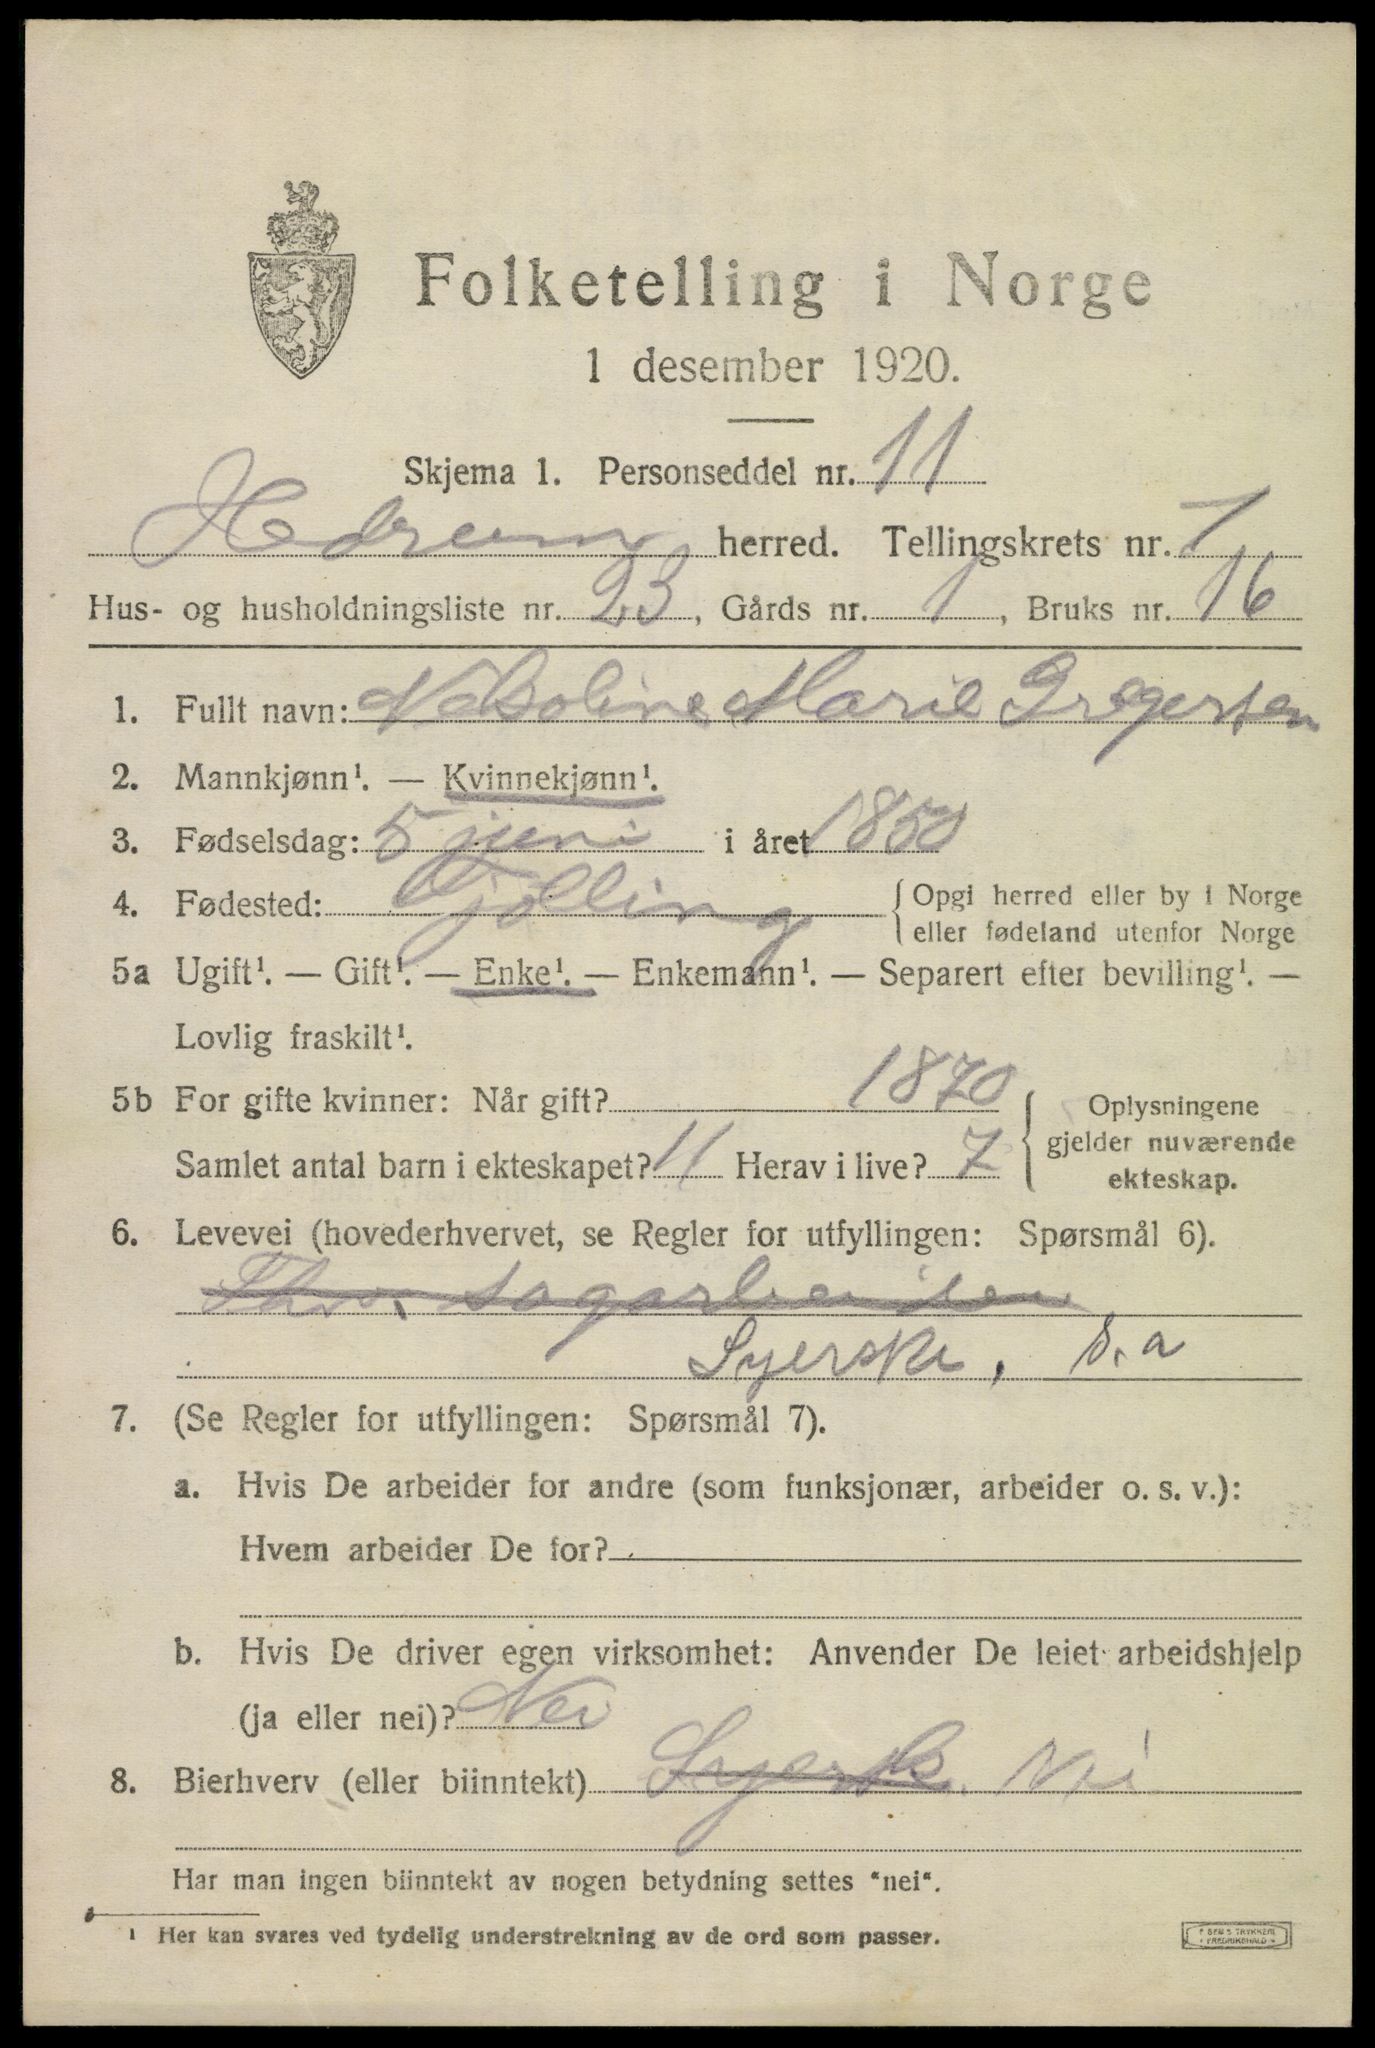 Folketelling i Norge
1 desember 1920.
Skjema 1. Personseddel nr. 11
Hedrum herred. Tellingskrets nr. 7
Hus- og husholdningsliste nr. 23, Gårds nr. 1, Bruks nr. 16
1. Fullt navn: Nikoline Marie Gregersen
2. Mannkjønn¹. — Kvinnekjønn¹.
3. Fødselsdag: 5 juni i året 1850
4. Fødested: Tjølling { Opgi herred eller by i Norge
eller fødeland utenfor Norge
5a Ugift¹. — Gift¹. — Enke¹. — Enkemann¹. — Separert efter bevilling¹. —
Lovlig fraskilt¹.
5b For gifte kvinner: Når gift? 1870 { Oplysningene
gjelder nuværende
Samlet antal barn i ekteskapet? 11 Herav i live? 7 ekteskap.
6. Levevei (hovederhvervet, se Regler for utfyllingen: Spørsmål 6).
Syerske, s.a
7. (Se Regler for utfyllingen: Spørsmål 7).
a. Hvis De arbeider for andre (som funksjonær, arbeider o. s. v.):
Hvem arbeider De for?
b. Hvis De driver egen virksomhet: Anvender De leiet arbeidshjelp
(ja eller nei)? Nei
8. Bierhverv (eller biinntekt) Syersk. Nei
Har man ingen biinntekt av nogen betydning settes "nei".
¹ Her kan svares ved tydelig understrekning av de ord som passer.